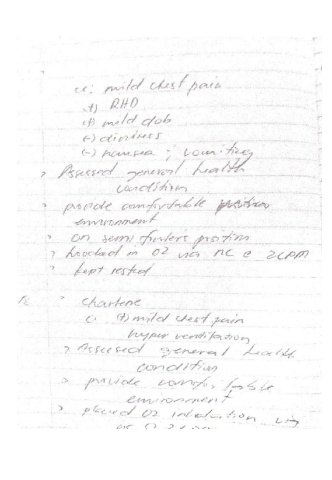 c: mild chest pain
(+) RHD
(+) mild dob
(-) dizziness
(-) nausea ; vomiting
> Assessed general health
condition
> provide comfortable
environment
> on semi fowlers position
> hooked in O2 via NC @ 2LPM
> kept rested
> Charlene
c: (+) mild chest pain
hyper ventilation
> Assessed general health
condition
> provide comfortable
environment
> placed O2 inhalation via